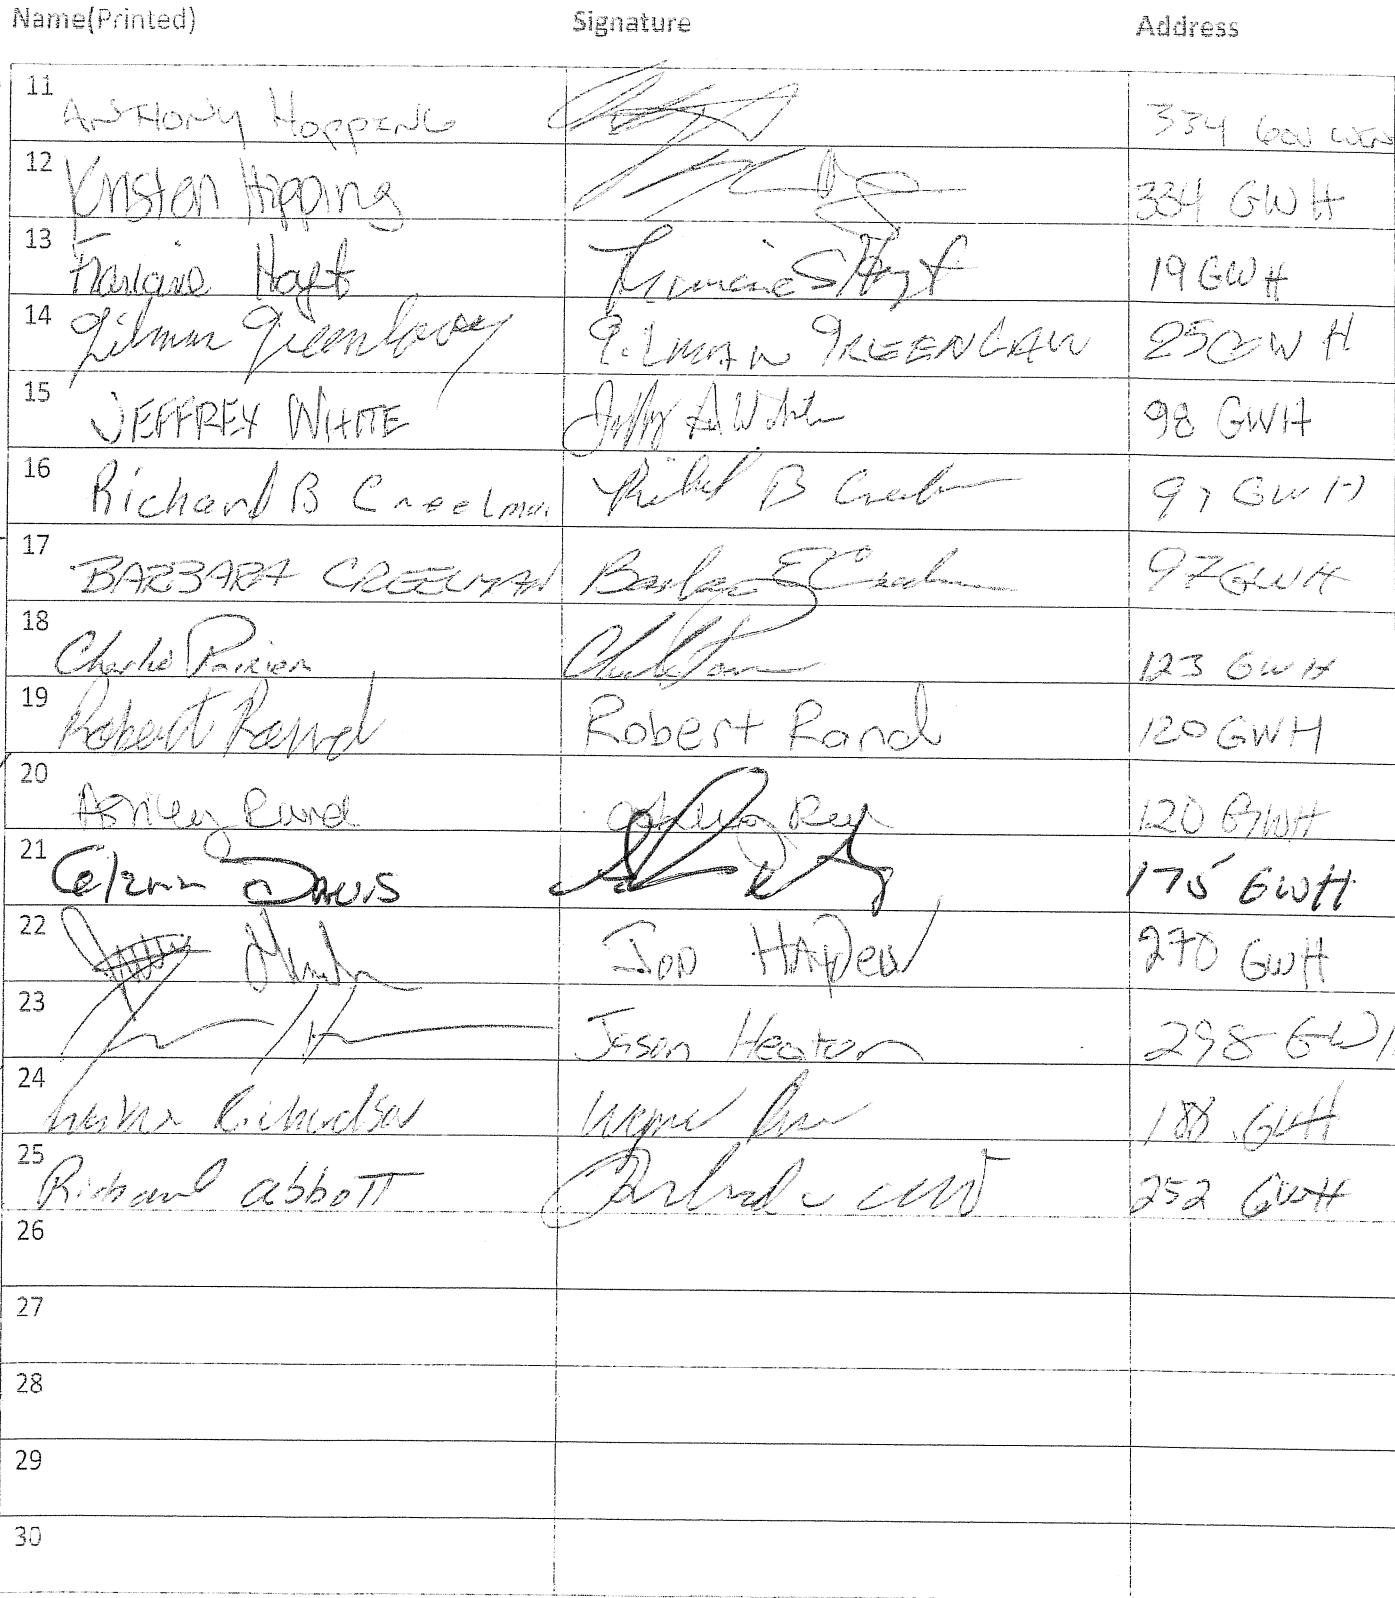 Name(Printed) Signature Address
11 ANTHONY HOPPING 334 GOV WEN
12 Kristen Hopping 334 GWH
13 Francine Hoyt Francine S Hoyt 19 GWH
14 Gilman Greenlaw GILMAN GREENLAW 25 GWH
15 JEFFREY WHITE Jeffrey A White 98 GWH
16 Richard B Creelman Richard B Creelman 97 GWH
17 BARBARA CREELMAN Barbara E Creelman 97 GWH
18 Charlie Poirier 123 GWH
19 Robert Rand Robert Rand 120 GWH
20 Ashley Rand Ashley Rand 120 GWH
21 Glenn DAVIS 175 GWH
22 Jon HAyDen 270 GWH
23 Jason Heaton 298 GWH
24 Richardson 188 GWH
25 Richard abbott 252 GWH
26
27
28
29
30